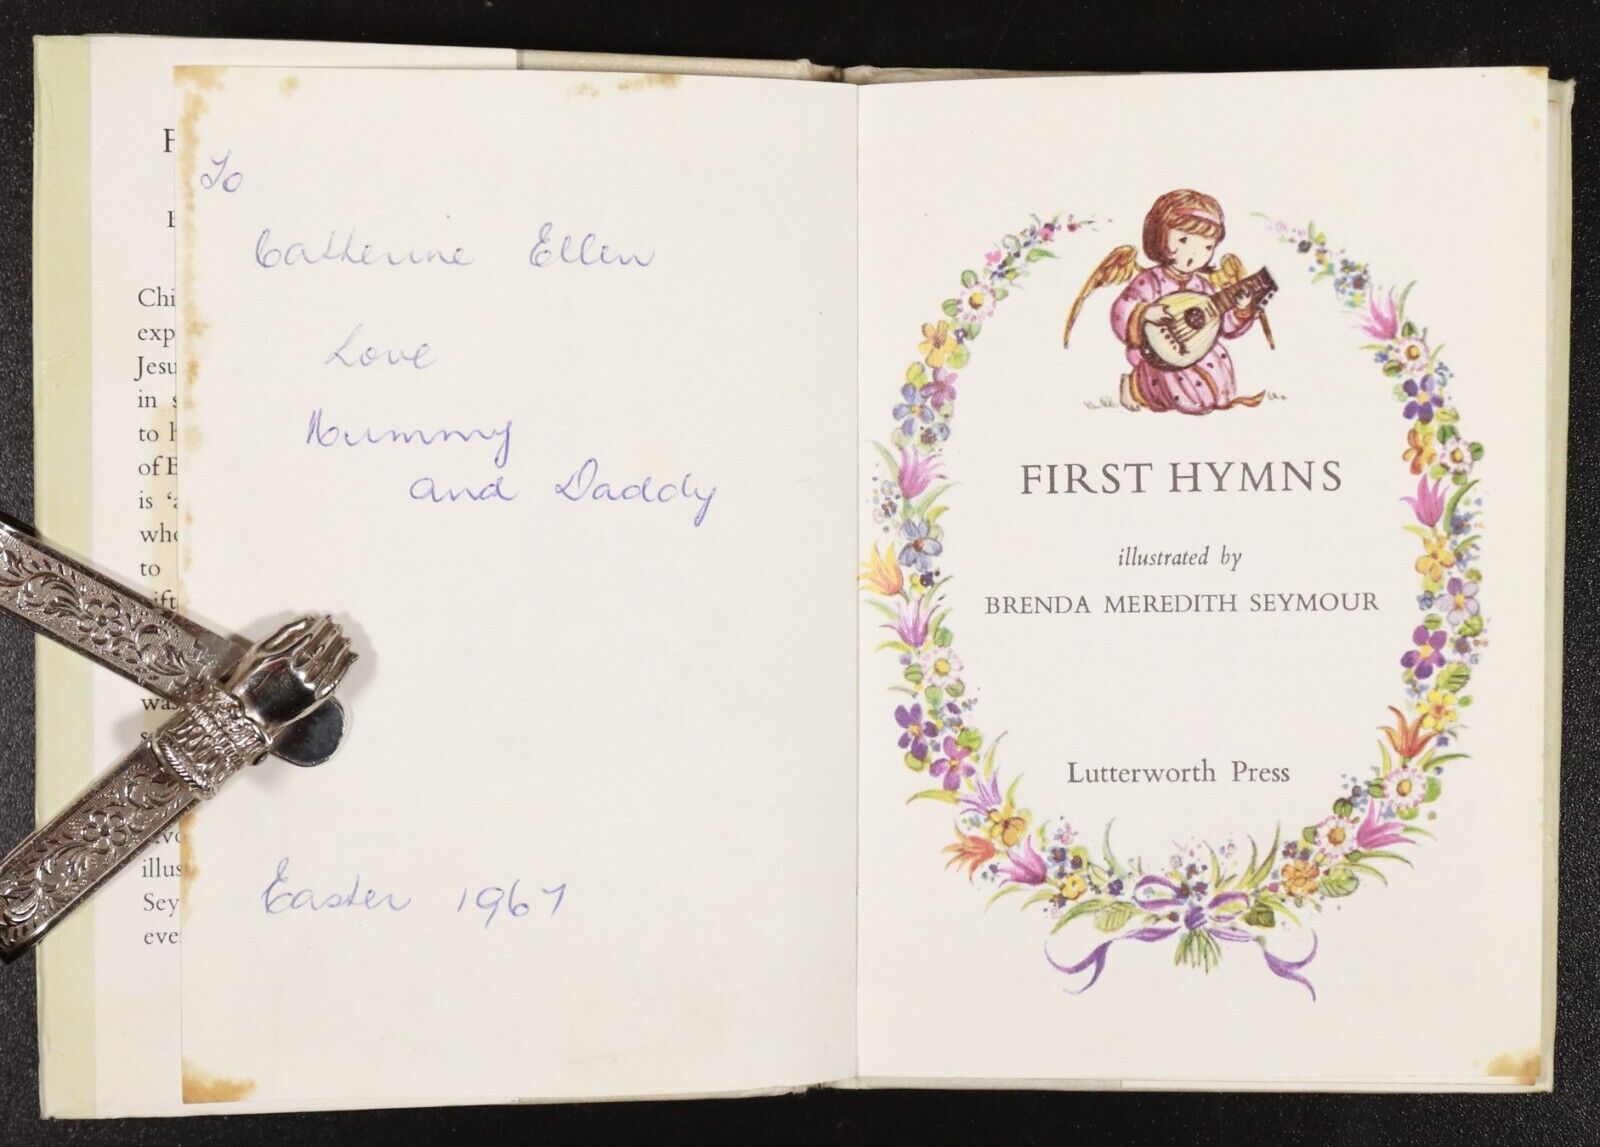 F
Chi
exp
Jesu
in s
to h
of B
is ‘a
who
to
gift
was
illus
Sey
eve
To
Catherine Ellen
Love
Mummy
and Daddy
Easter 1967
FIRST HYMNS
illustrated by
BRENDA MEREDITH SEYMOUR
Lutterworth Press